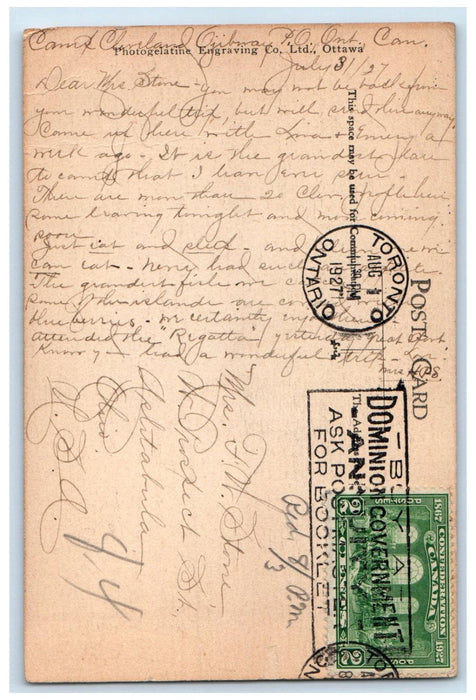 Camp Cleveland Ojibway P.O. Ont. Can.
Photogelatine Engraving Co. Ltd., Ottawa
July 31/27
Dear Mrs Stone - you may not be back from
your wonderful trip but will send this anyway
Came up here with
week ago - It is the grandest place
to camp that I have ever seen.
There are more than 20 Cleve. people here
some leaving tonight and more coming
soon.
Just eat and sleep - and
can eat - never had such
The grandest fish we
some of the islands are
blueberries - we certainly enjoy
attended the "Regatta" yesterday great
know - had a wonderful
This space may be used for Communication
POST CARD
The Address
TORONTO
ONTARIO
AUG 1
PM
1927
Mrs. F. W. Stone
W. Prospect St.
Ashtabula
Ohio
U.S.A.
94
Rcd 8/3 PM
BUY A
DOMINION GOVERNMENT
ANNUITY
ASK POSTMASTER
FOR BOOKLET
1867 CONFEDERATION 1927
CANADA
POSTES POSTAGE
2 CENTS 2